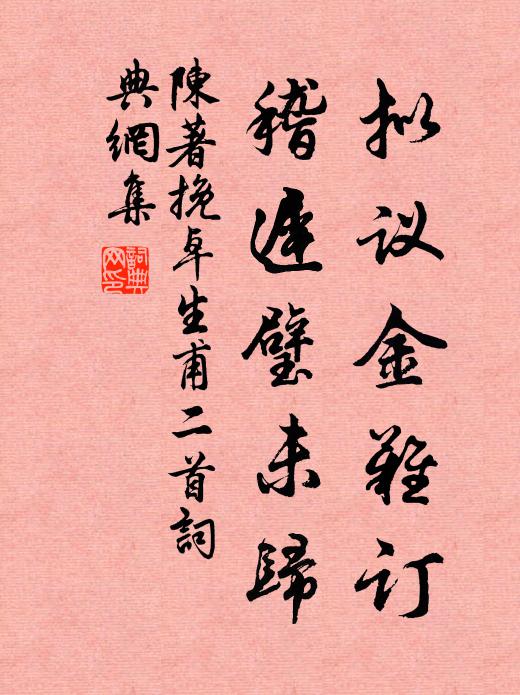 拟议金难订
稽遲璧未歸
陳著挽卓生甫二首詞
典網集
詞典
网印